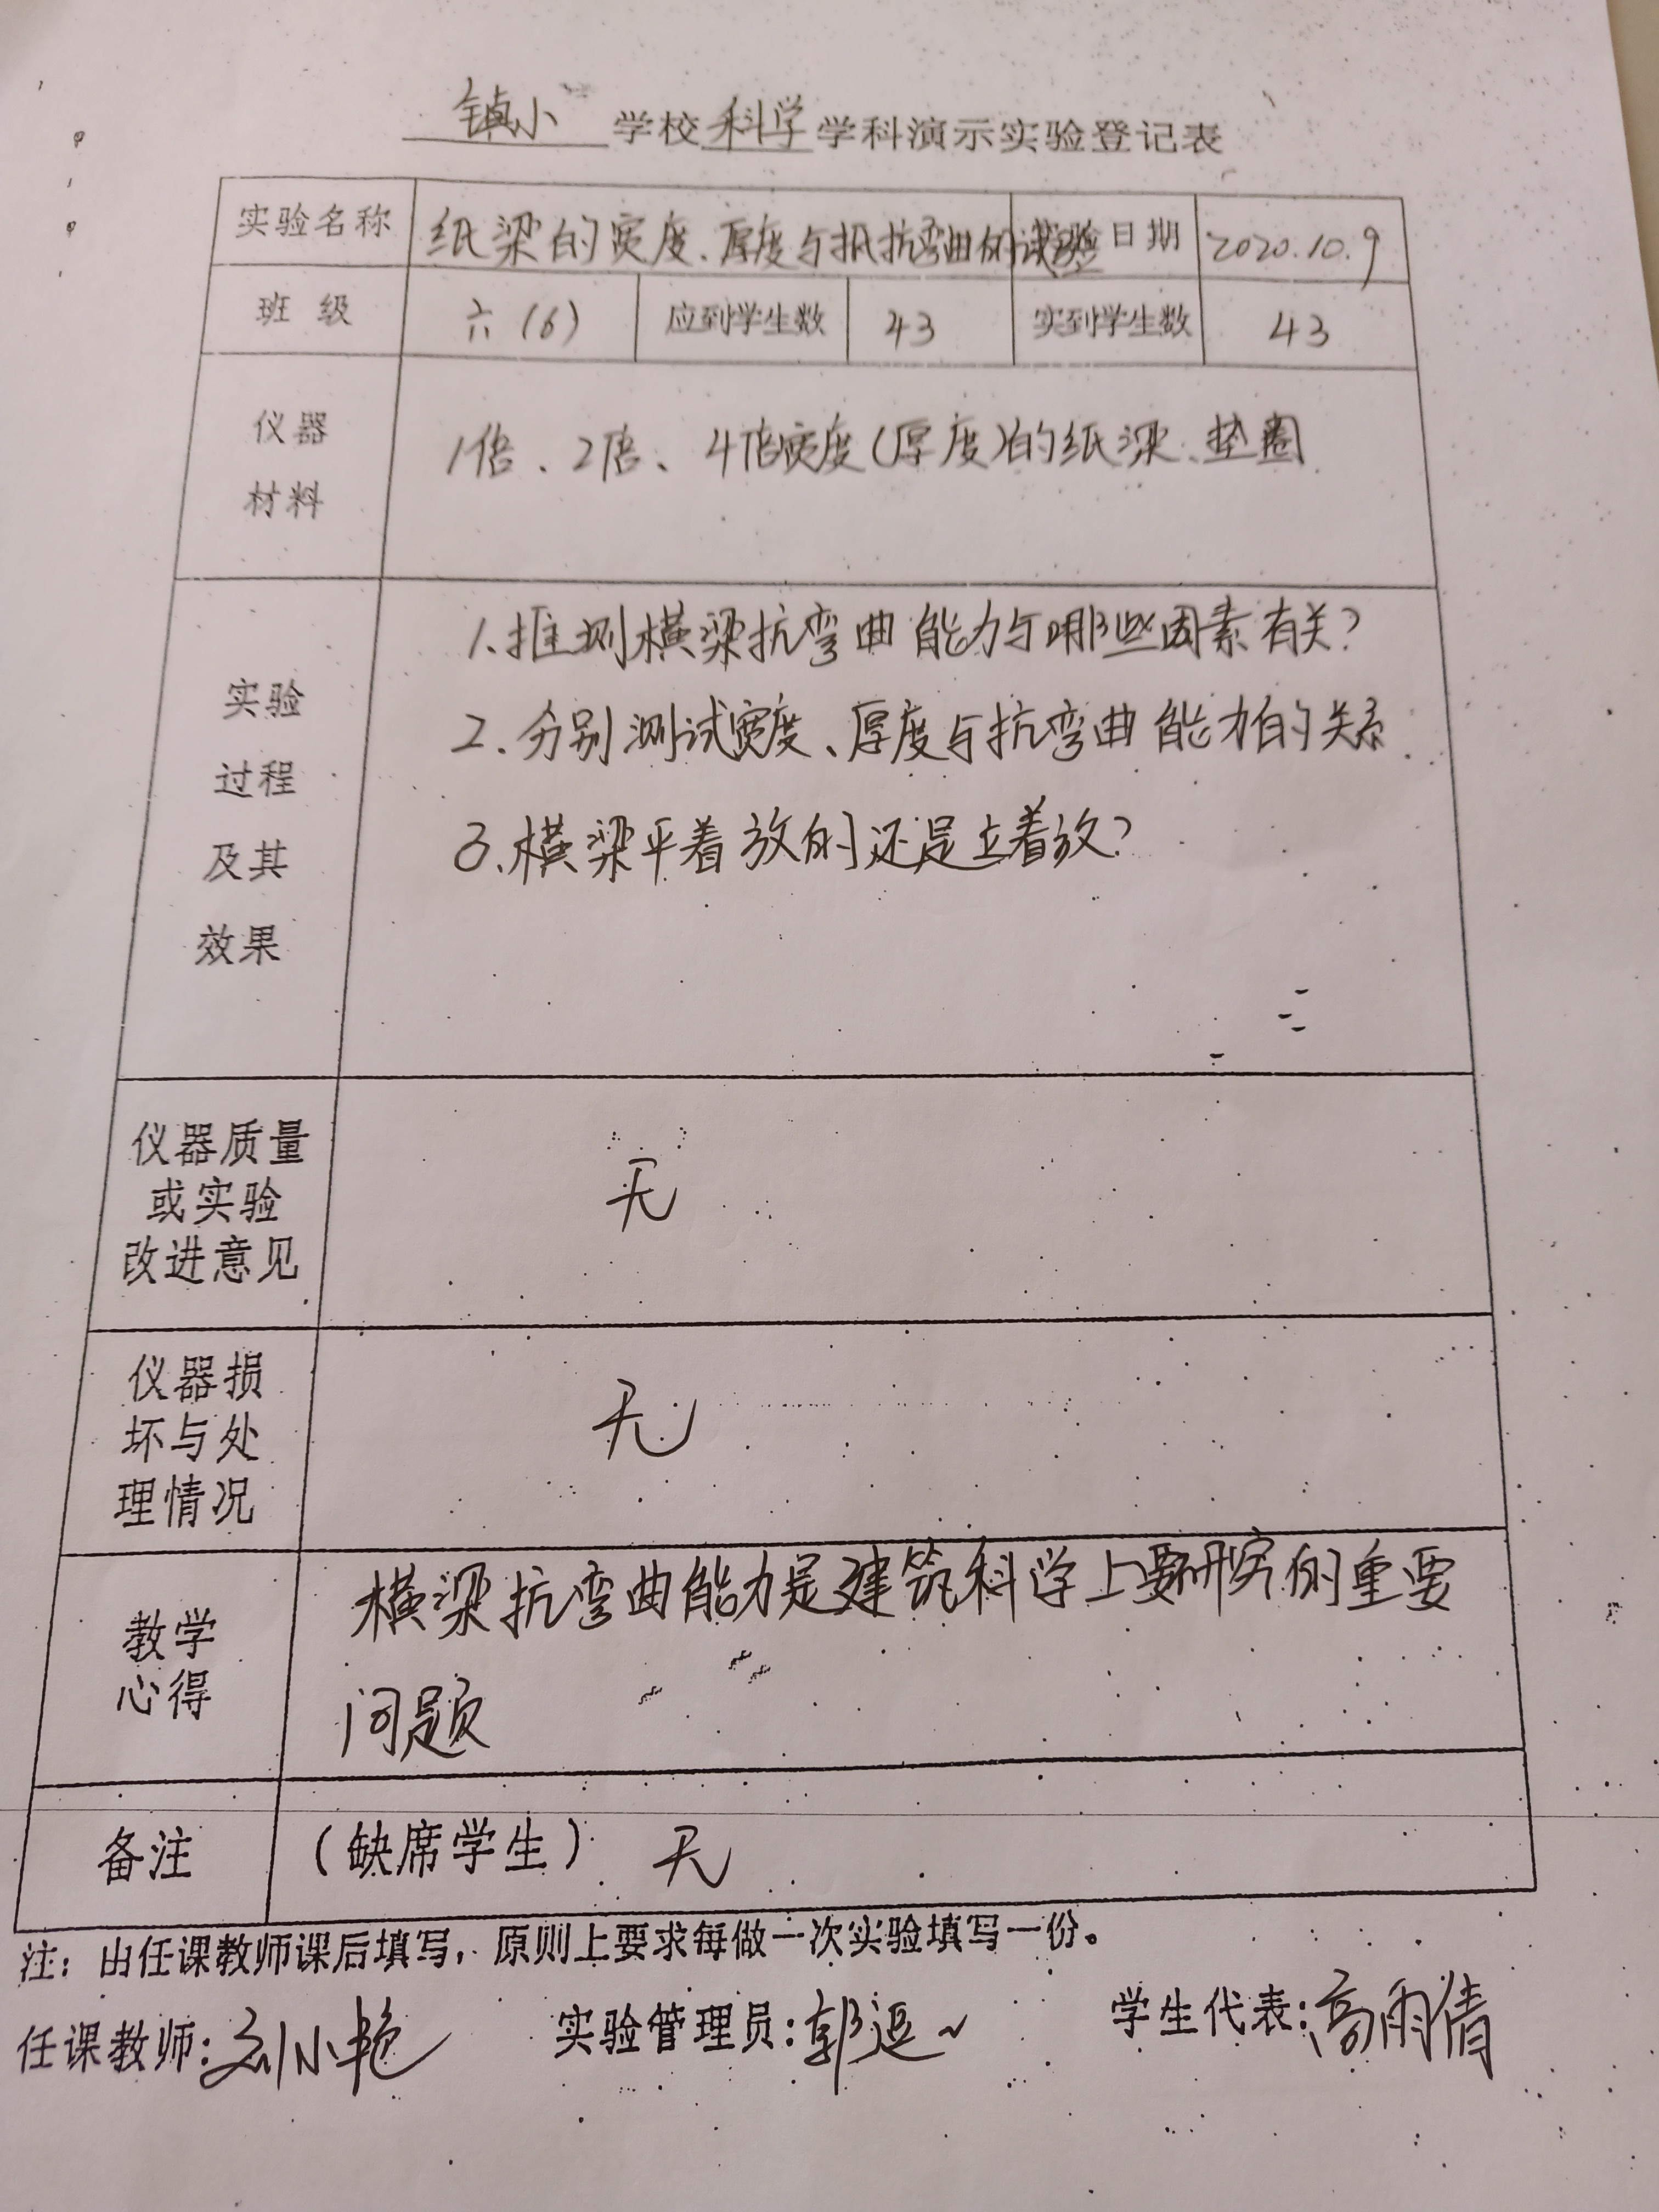 镇小 学校 科学 学科演示实验登记表
实验名称 纸梁的宽度、厚度与抵抗弯曲的试验 日期 2020.10.9
班级 六(6) 应到学生数 43 实到学生数 43
仪器
材料
1倍、2倍、4倍宽度(厚度)的纸梁、垫圈
实验
过程
及其
效果
1.推测横梁抗弯曲能力与哪些因素有关?
2.分别测试宽度、厚度与抗弯曲能力的关系
3.横梁平着放的还是立着放?
仪器质量
或实验
改进意见
无
仪器损
坏与处
理情况
无
教学
心得
横梁抗弯曲能力是建筑科学上要研究的重要
问题
备注 (缺席学生) 无
注:由任课教师课后填写,原则上要求每做一次实验填写一份。
任课教师:刘小艳 实验管理员:郭 学生代表:高雨倩